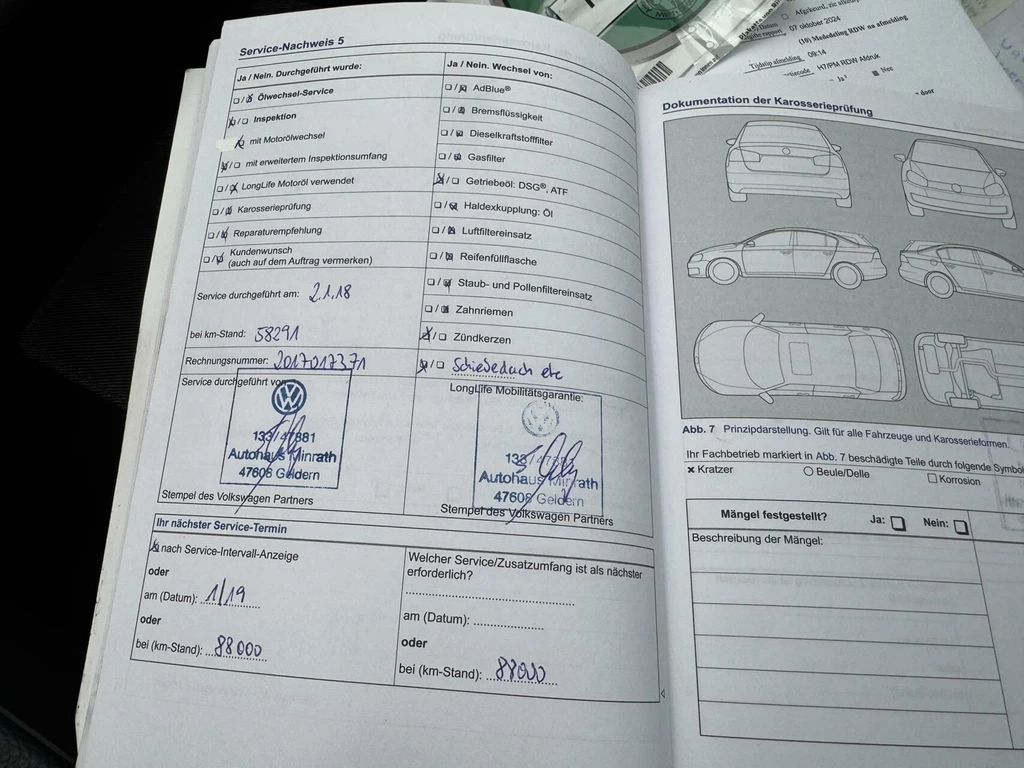 Service-Nachweis 5
Ja / Nein. Durchgeführt wurde:
Ölwechsel-Service
Inspektion
mit Motorölwechsel
mit erweitertem Inspektionsumfang
LongLife Motoröl verwendet
Karosserieprüfung
Reparaturempfehlung
Kundenwunsch
(auch auf dem Auftrag vermerken)
Service durchgeführt am: 2.1.18
bei km-Stand: 58291
Rechnungsnummer: 2017017371
Service durchgeführt von
133/47881
Autohaus Minrath
47608 Geldern
Stempel des Volkswagen Partners
Ja / Nein. Wechsel von:
AdBlue®
Bremsflüssigkeit
Dieselkraftstofffilter
Gasfilter
Getriebeöl: DSG®, ATF
Haldexkupplung: Öl
Luftfiltereinsatz
Reifenfüllflasche
Staub- und Pollenfiltereinsatz
Zahnriemen
Zündkerzen
Schiebedach etc
LongLife Mobilitätsgarantie:
Autohaus Minrath
47608 Geldern
Stempel des Volkswagen Partners
Ihr nächster Service-Termin
nach Service-Intervall-Anzeige
oder
am (Datum): 1/19
oder
bei (km-Stand): 88000
Welcher Service/Zusatzumfang ist als nächster
erforderlich?
am (Datum):
oder
bei (km-Stand): 88000
Afgekeurd, zie
07 oktober 2024
(10) Mededeling RDW na afmelding
Tijdstip afmelding 09:14
H7/PM RDW Afdruk
Ja
Nee
door
Dokumentation der Karosserieprüfung
Abb. 7 Prinzipdarstellung. Gilt für alle Fahrzeuge und Karosserieformen.
Ihr Fachbetrieb markiert in Abb. 7 beschädigte Teile durch folgende
× Kratzer ○ Beule/Delle □ Korrosion
Mängel festgestellt? Ja: □ Nein: □
Beschreibung der Mängel: